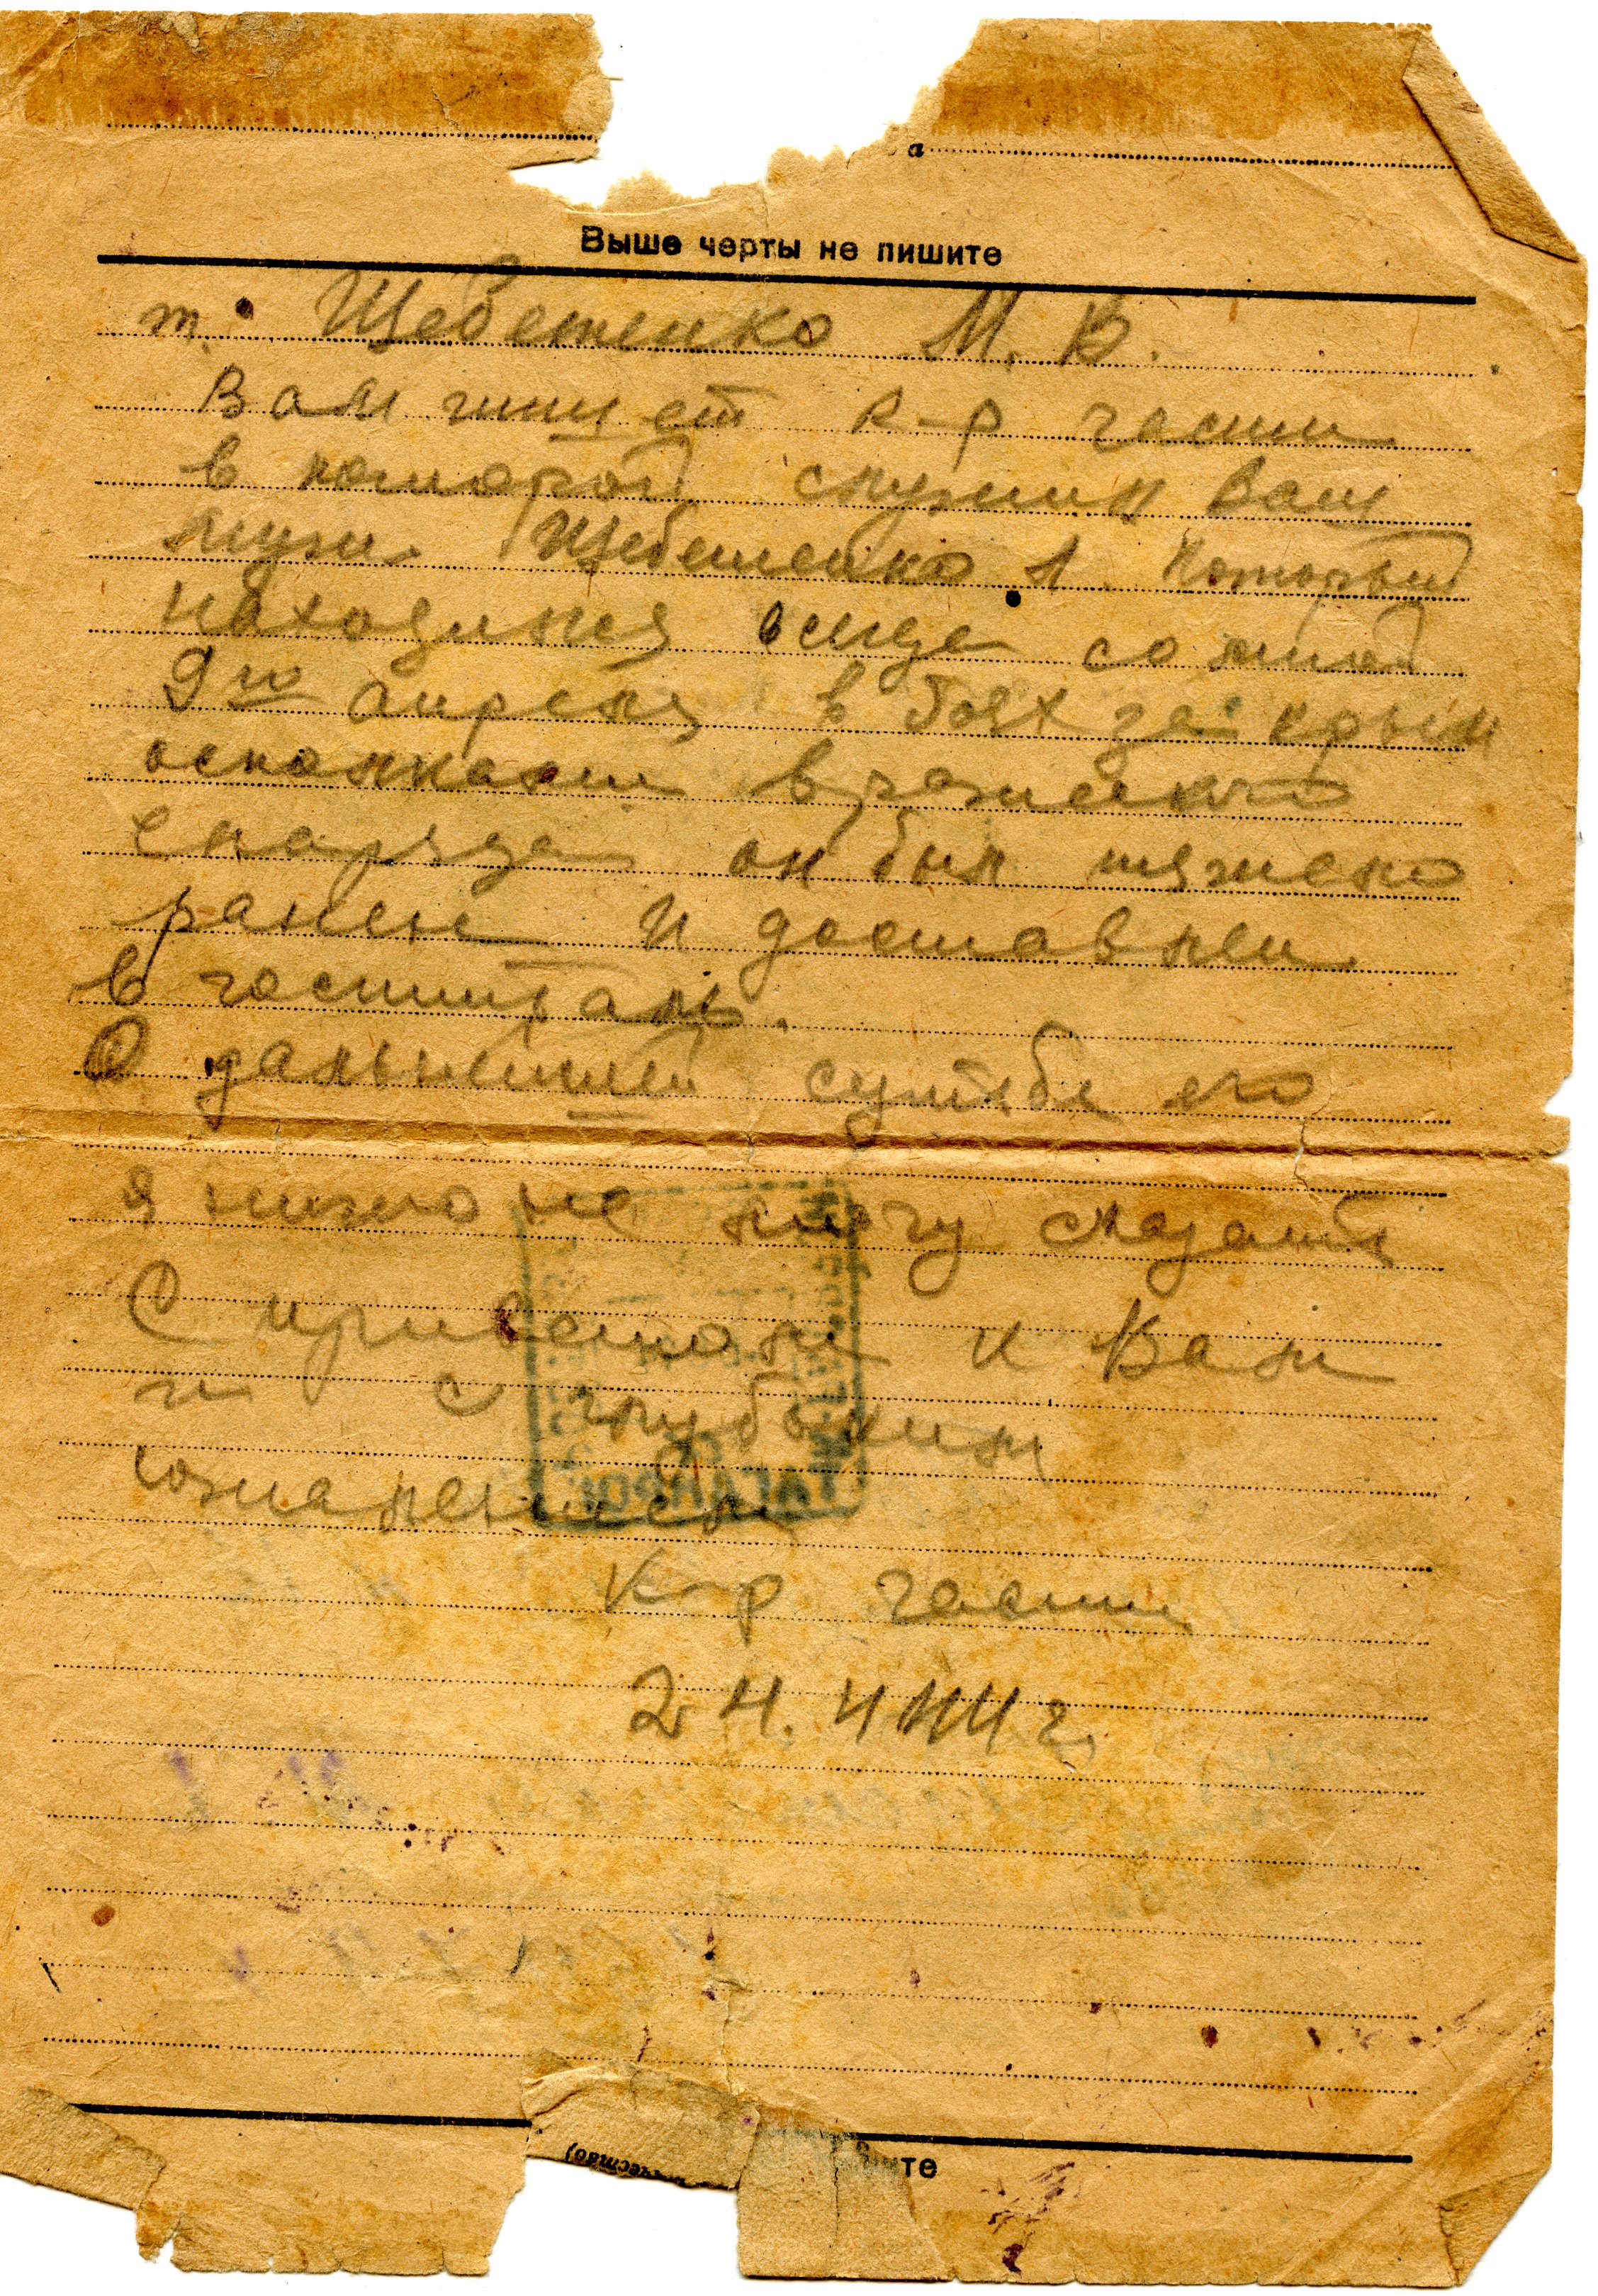 а
Выше черты не пишите
т. Щебетенко М. В.
Вам пишет к-р части
в которой служил Ваш
муж Щебетенко Л. который
находился всегда со мной
9го апреля в боях за крым
осколками вражеского
снаряда он был тяжело
ранен и доставлен
в госпиталь.
О дальнейшей судьбе его
я ничего не могу сказать
С приветом к Вам
и с глубоким
К-р части
24. 4 44 г.
ите